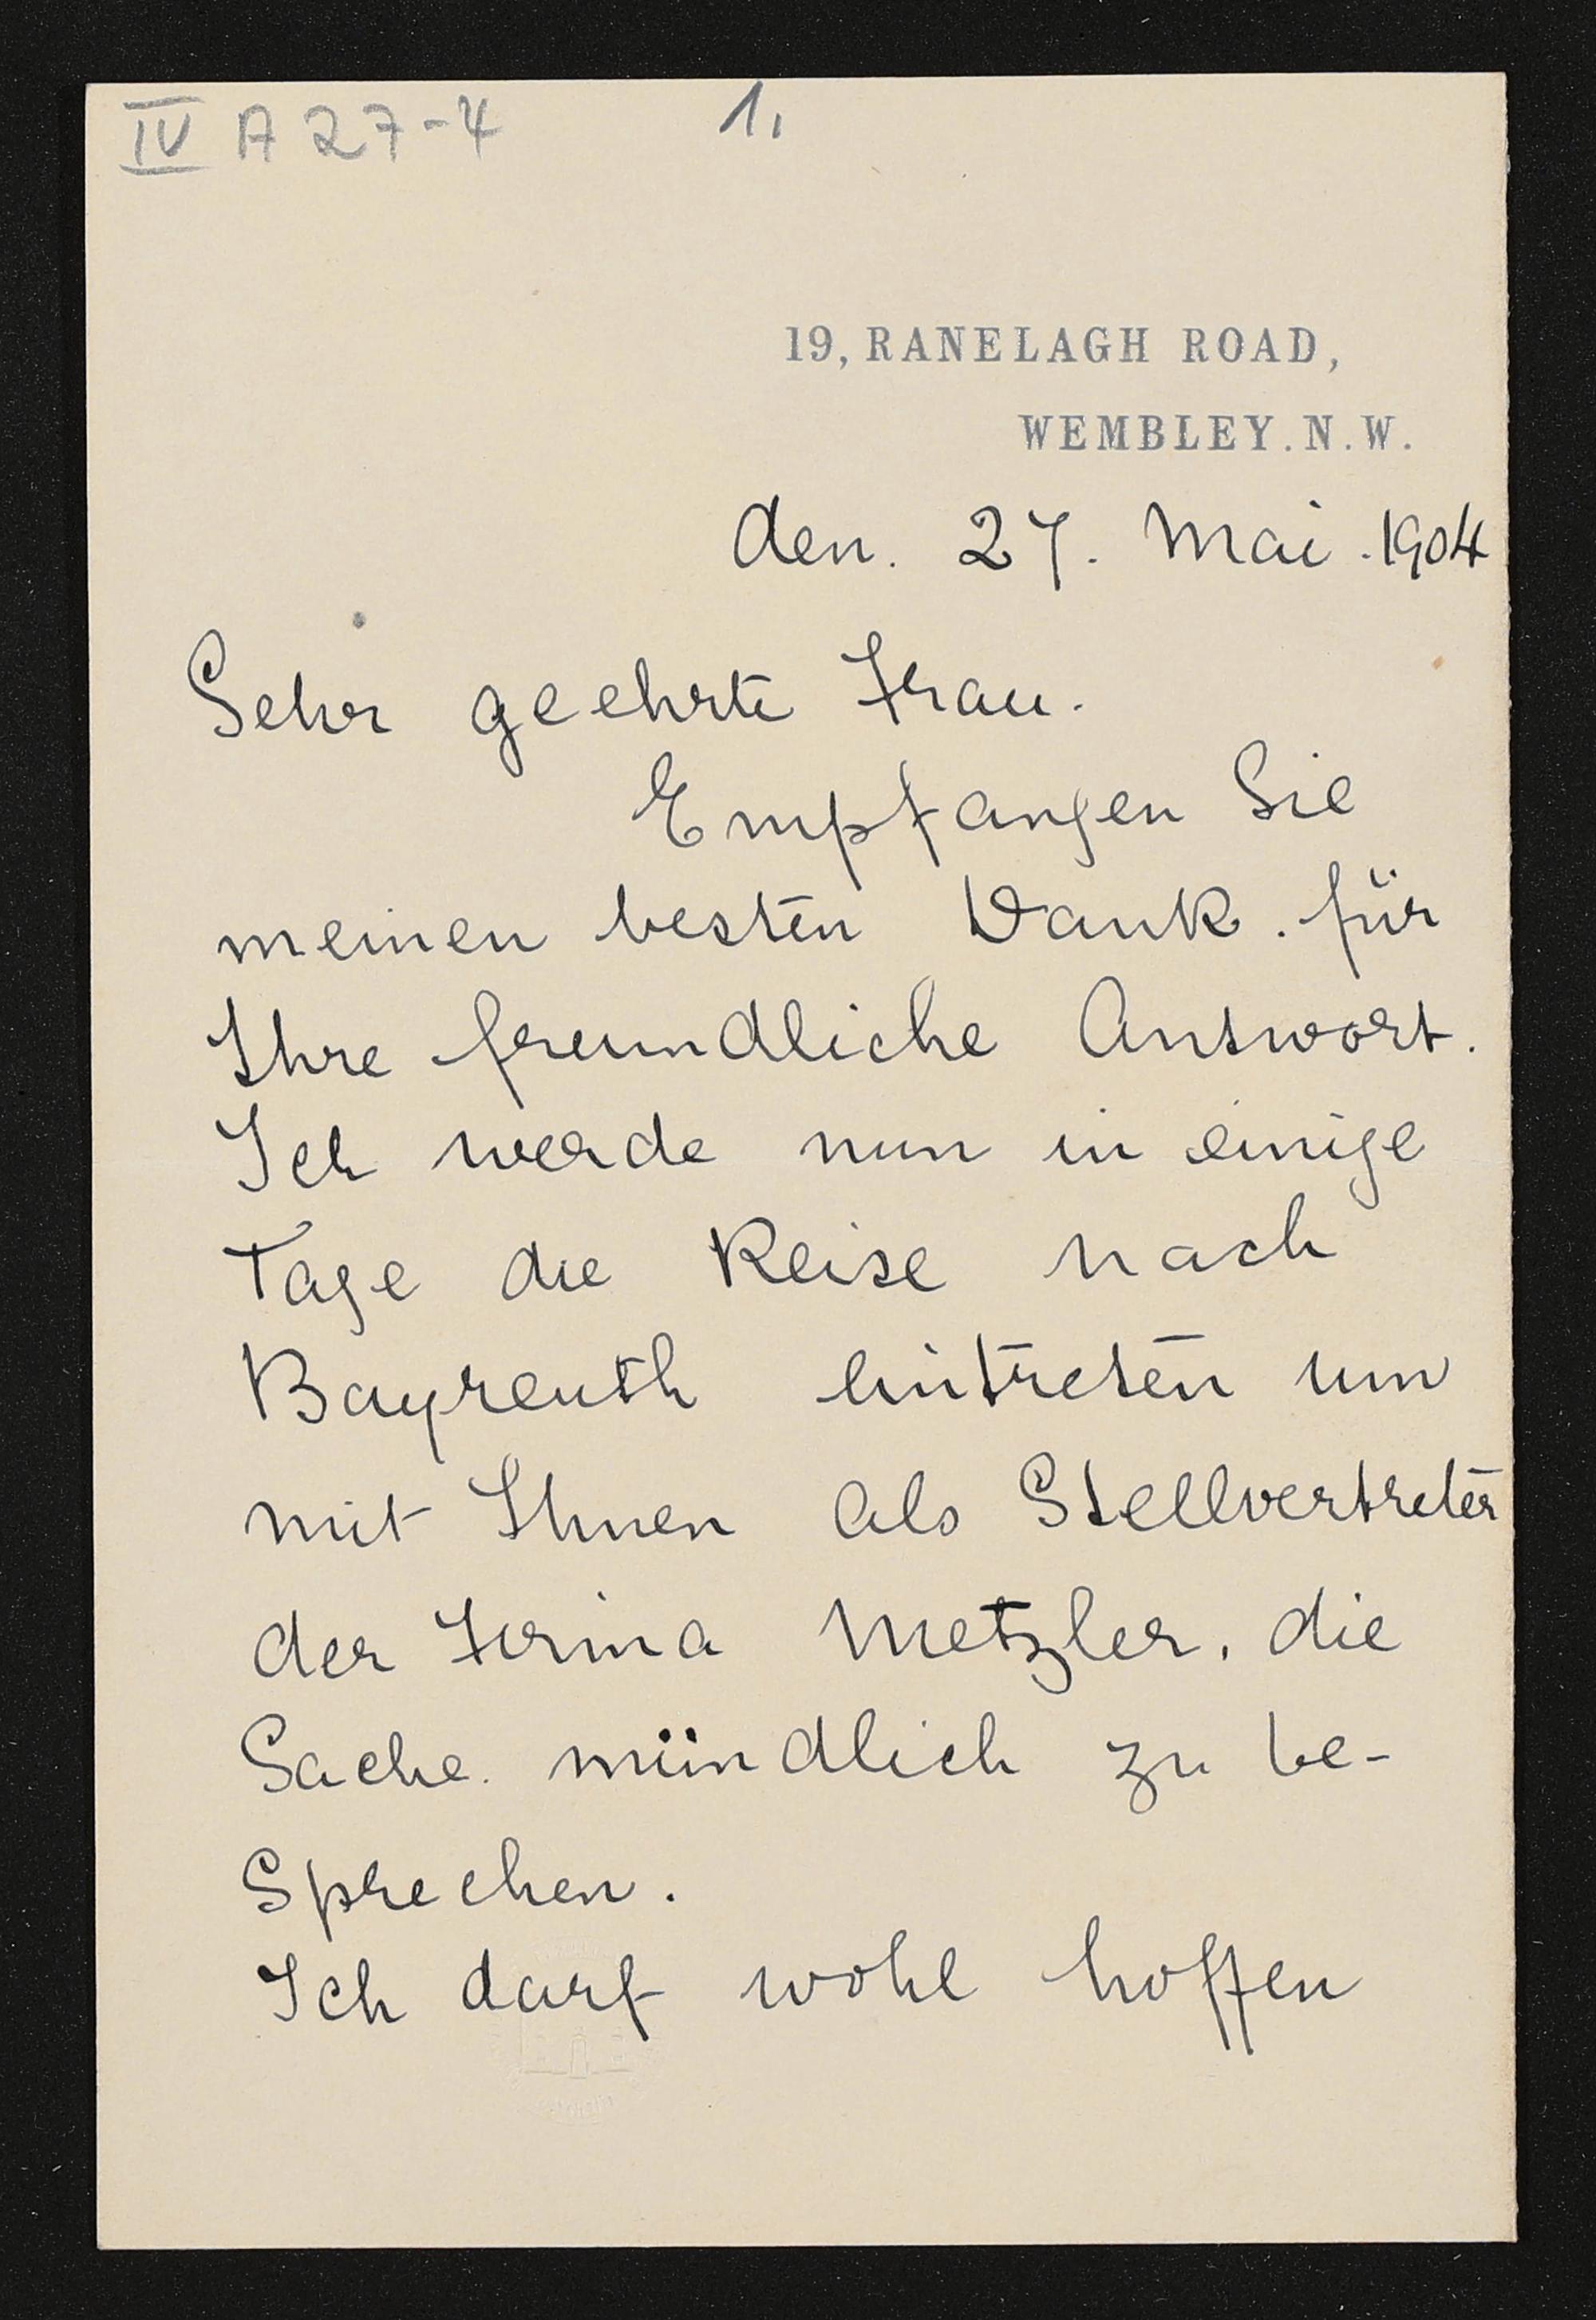 IV A 27-4 1.
19, RANELAGH ROAD,
WEMBLEY. N. W.
den. 27. Mai. 1904
Sehr geehrte Frau.
Empfangen Sie
meinen besten Dank. für
Ihre freundliche Antwort.
Ich werde nun in einige
Tage die Reise nach
Bayreuth eintreten um
mit Ihnen als Stellvertreter
der Firma Metzler, die
Sache. mündlich zu be-
sprechen.
Ich darf wohl hoffen